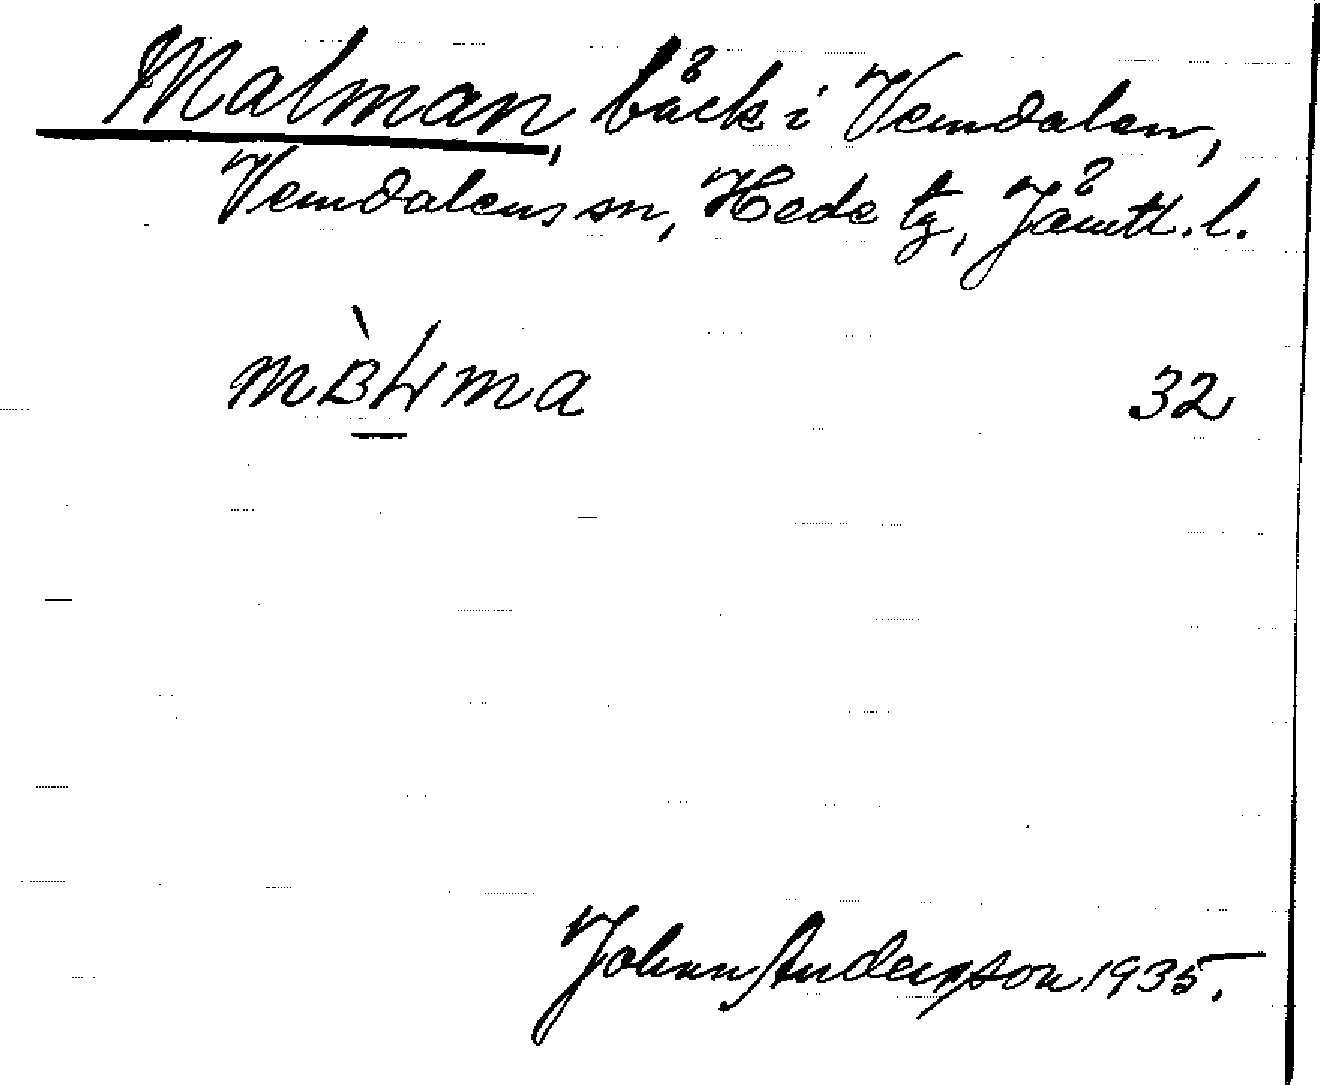 Malman, bäck i Vemdalen,
Vemdalens sn, Hede tg, Jämtl. l.
32
Johan Anderson 1935.